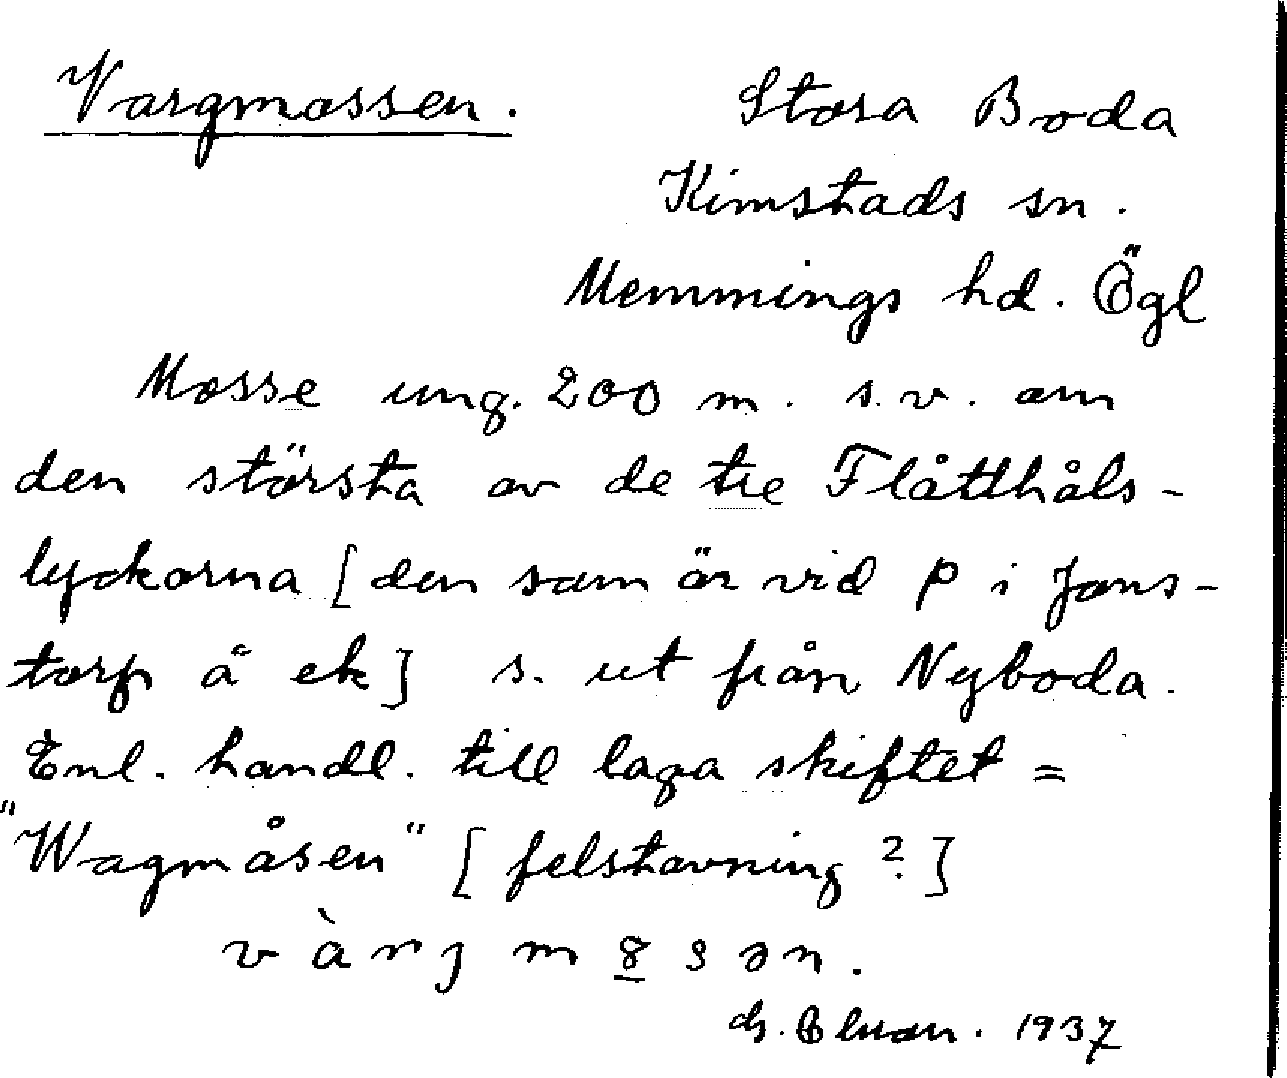 Vargmossen. Stora Boda
Kimstads sn.
Memmings hd. Ögl
Mosse ung. 200 m. s.v. om
den största av de tre Flåtthåls-
lyckorna [den som är vid p i Jons-
torp å ek] s. ut från Nyboda.
Enl. handl. till laga skiftet =
"Wagmåsen" [felstavning?]
vàrjm8sən.
1937